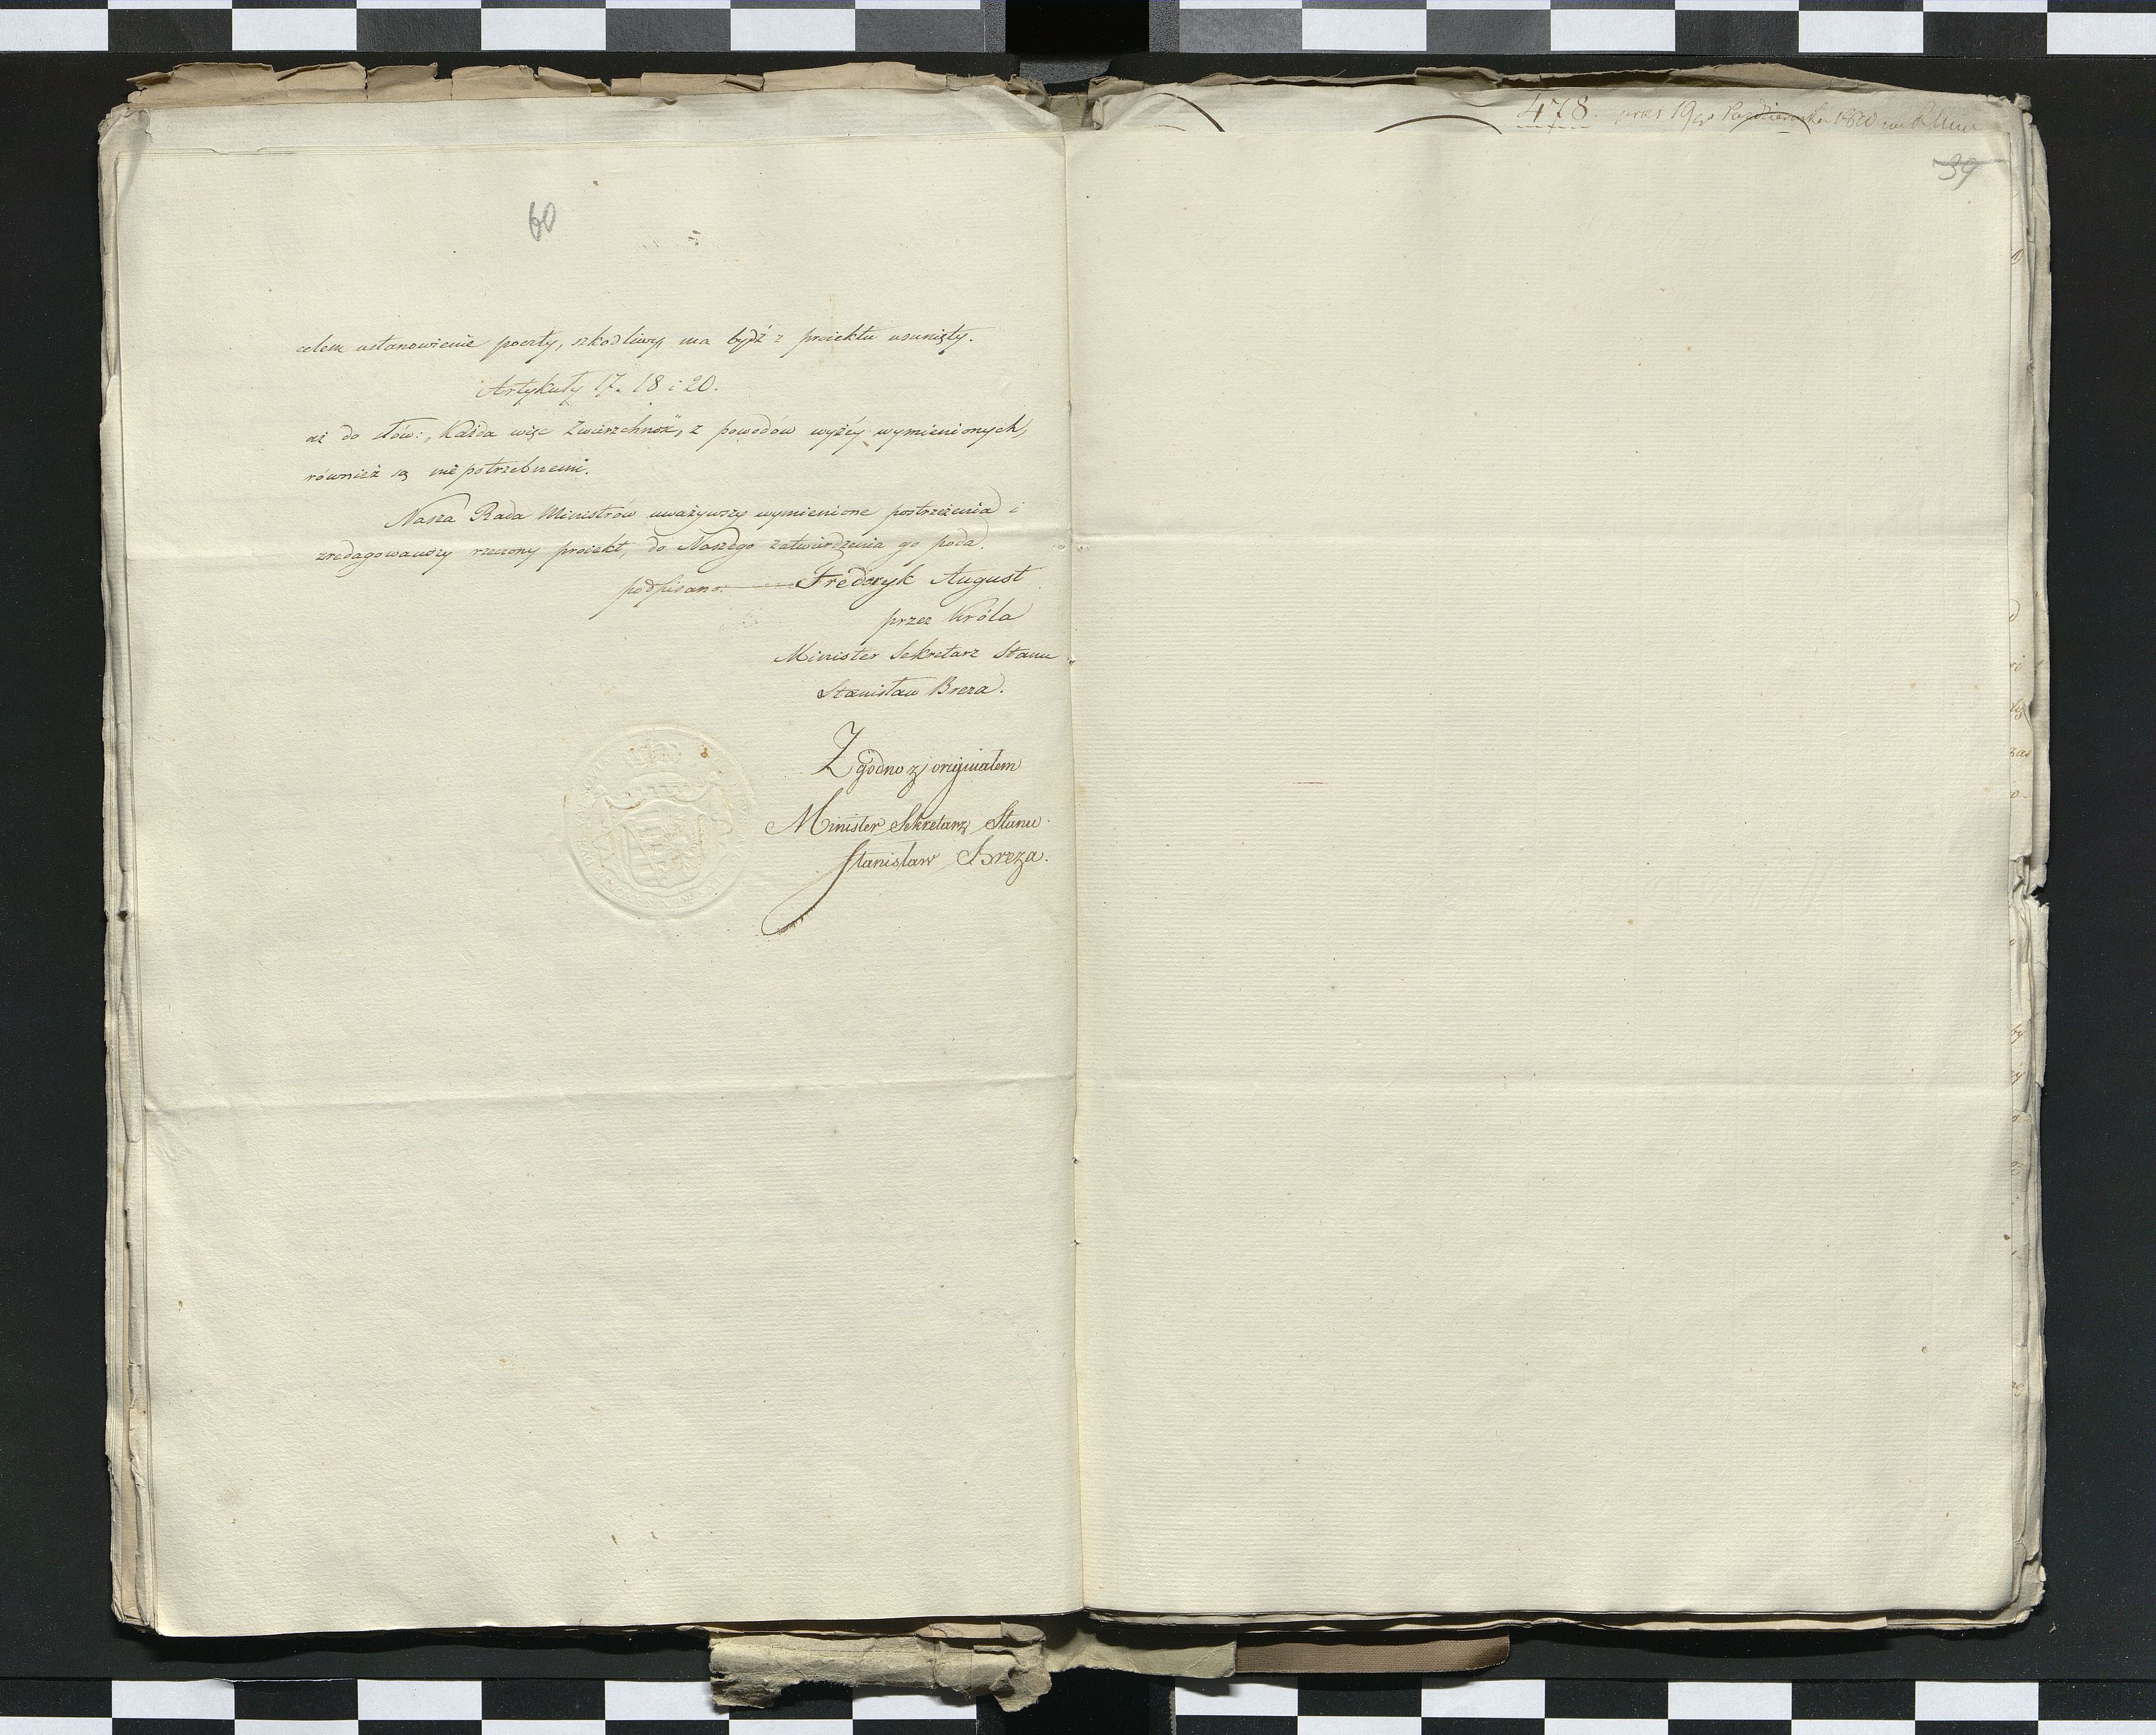 60
celem ustanowienie poczty, szkodliwy, ma bydź z proiektu usunięty.
Artykuły 17. 18 i 20.
aż do słów: „Każda więc Zwierzchność„ z powodów wyżéy wymienionych,
również są niepotrzebnemi.
Nasza Rada Ministrów uważywszy wymienione postrzeżenia i
zredagowawszy rzeczony proiekt, do Naszego zatwierdzenia go poda.
podpisano: Frederyk August
przez Króla
Minister Sekretarz Stanu
Stanisław Breza.
Zgodno z oryginałem
Minister Sekretarz Stanu
Stanisław Breza.
478. 19 Października 1820
39